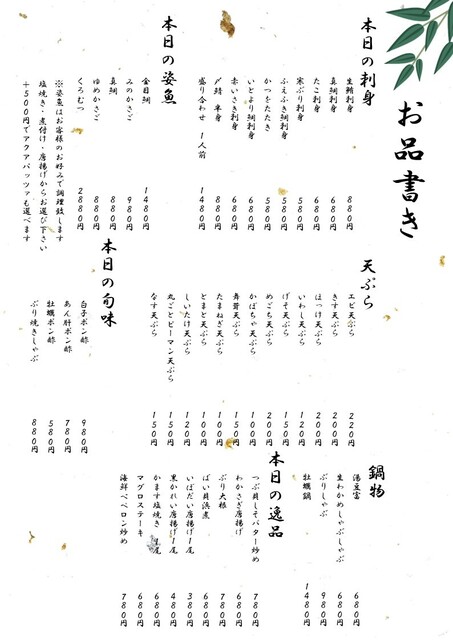 お品書き
本日の刺身
生鮪刺身 880円
真鯛刺身 680円
たこ刺身 680円
寒ぶり刺身 580円
ふえふき鯛刺身 580円
かつをたたき 580円
いとより鯛刺身 680円
赤いさき刺身 680円
〆鯖 半身 880円
盛り合わせ 1人前 1480円
本日の姿魚
金目鯛 1480円
みのかさご 980円
真鯛 880円
ゆめかさご 880円
くろむつ 2880円
※姿魚はお客様のお好みで調理致します
塩焼き・煮付け・唐揚げからお選び下さい
+500円でアクアパッツァも選べます
天ぷら
エビ天ぷら 220円
きす天ぷら 200円
ほっけ天ぷら 200円
いわし天ぷら 120円
げそ天ぷら 150円
めごち天ぷら 200円
かぼちゃ天ぷら 100円
舞茸天ぷら 150円
たまねぎ天ぷら 100円
とまと天ぷら 100円
しいたけ天ぷら 120円
丸ごとピーマン天ぷら 150円
なす天ぷら 150円
本日の旬味
白子ポン酢 980円
あん肝ポン酢 780円
牡蠣ポン酢 580円
ぶり焼きしゃぶ 880円
鍋物
湯豆富 680円
生わかめしゃぶしゃぶ 680円
ぶりしゃぶ 980円
牡蠣鍋 1480円
本日の逸品
つぶ貝しそバター炒め 780円
わかさぎ唐揚げ 680円
ぶり大根 780円
ばい貝浜煮 680円
いぼだい唐揚げ1尾 380円
黒かれい唐揚げ1尾 480円
かます塩焼き 1尾 680円
マグロステーキ 680円
海鮮ペペロン炒め 780円